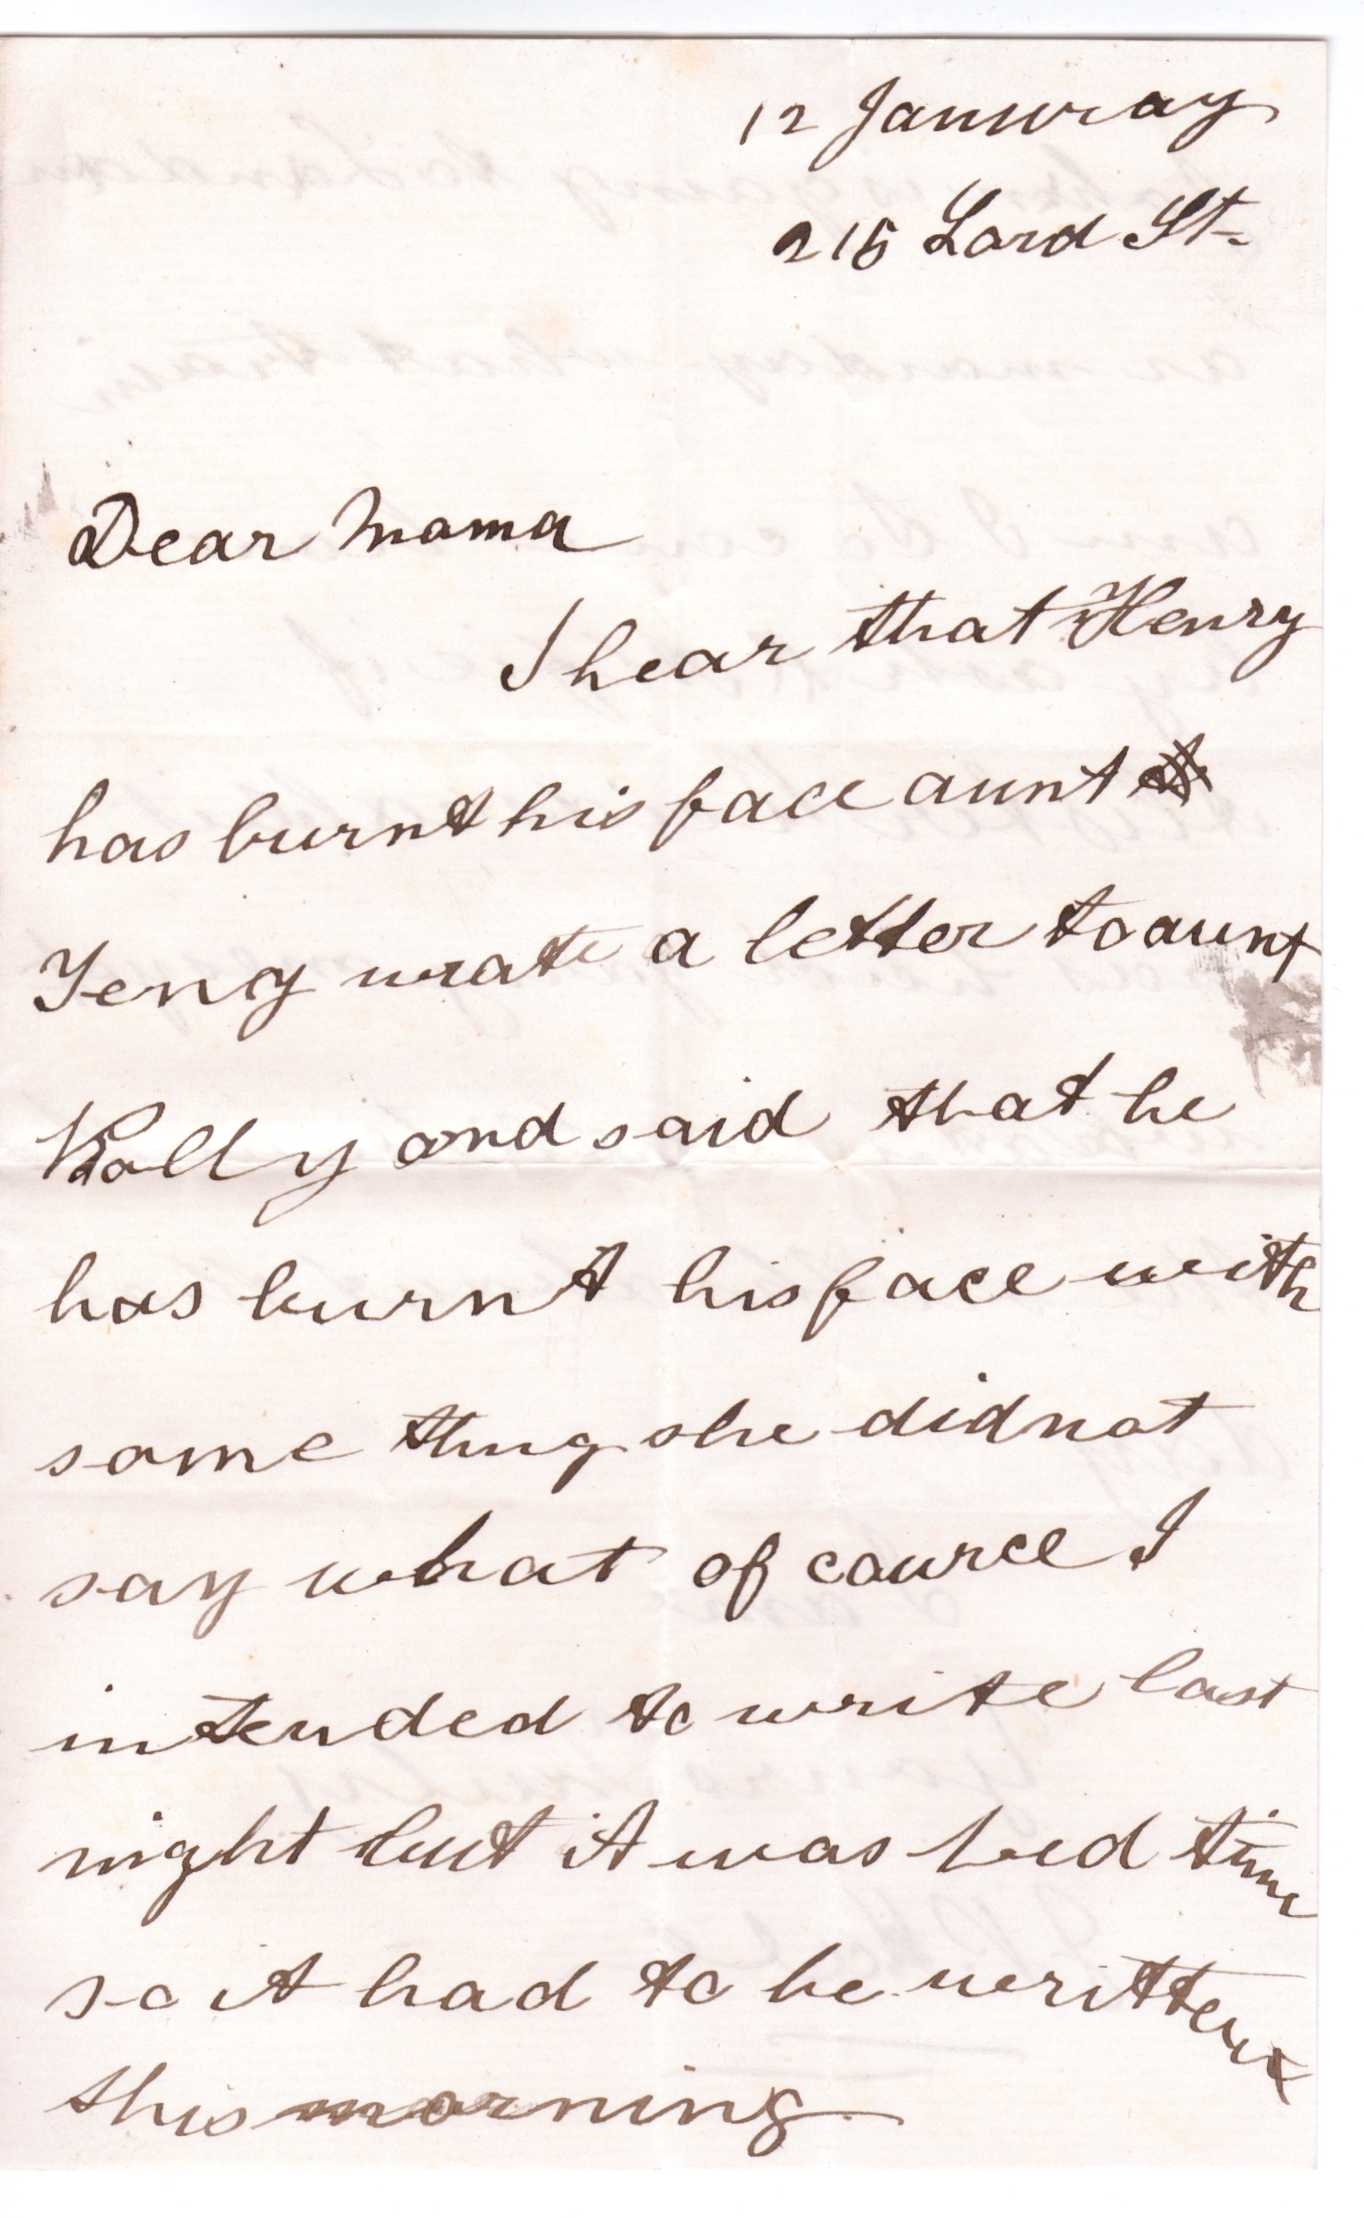 12 Januray
215 Lord St.
Dear Mama
I hear that Henry
has burnt his face aunt
Jeny wrote a letter to aunt
Polly and said that he
has burnt his face with
some thing she did not
say what of cource I
intended to write last
night but it was bed time
so it had to be written
this morning